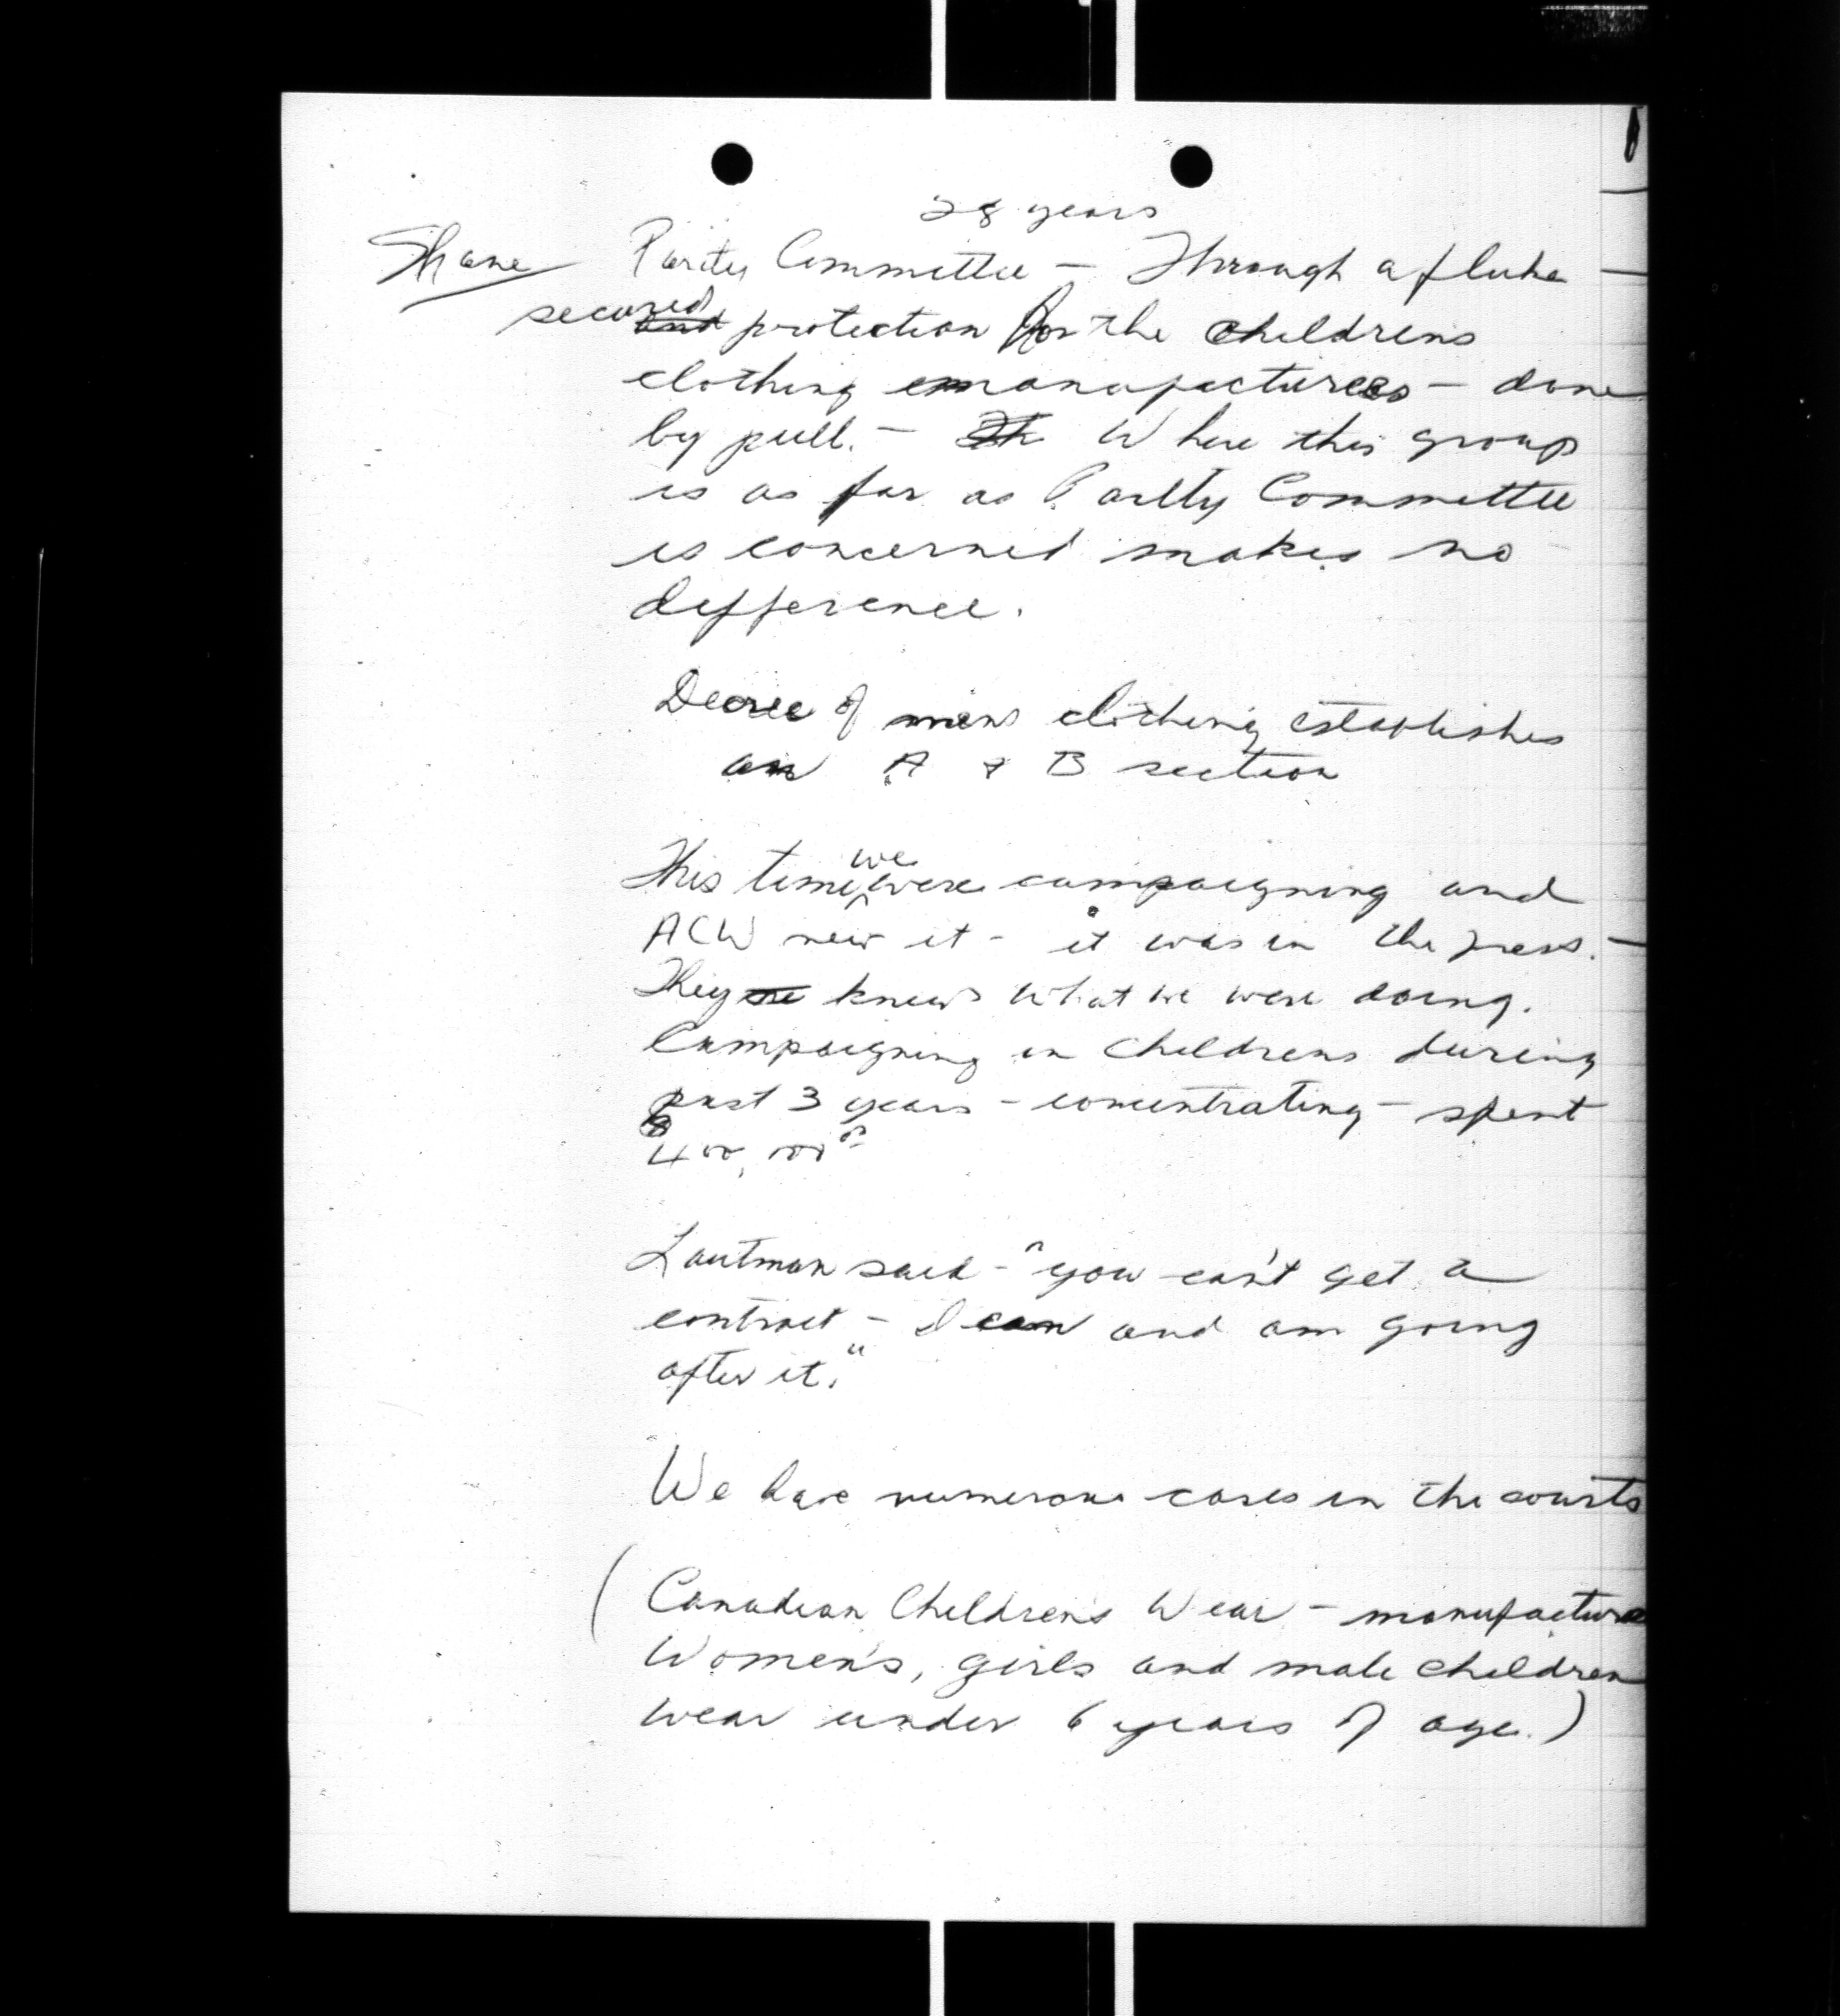 28 years
Shane Parity Committee - Through a fluke -
secured and protection for the childrens
clothing manufacturers - done
by pull. - Th Where this group
is as far as Parity Committee
is concerned makes no
difference.
Decree of mens clothing establishes
an A & B section
This time we were campaigning and
ACW new it - it was in the press. -
They ne knew what we were doing.
Campaigning in childrens during
past 3 years - concentrating - spent
$400,000
Lautman said - "you can't get a
contract - I can and am going
after it."
We have numerous cases in the courts
(Canadian Children's Wear - manufacture
Women's, girls and male children
wear under 6 years of age.)